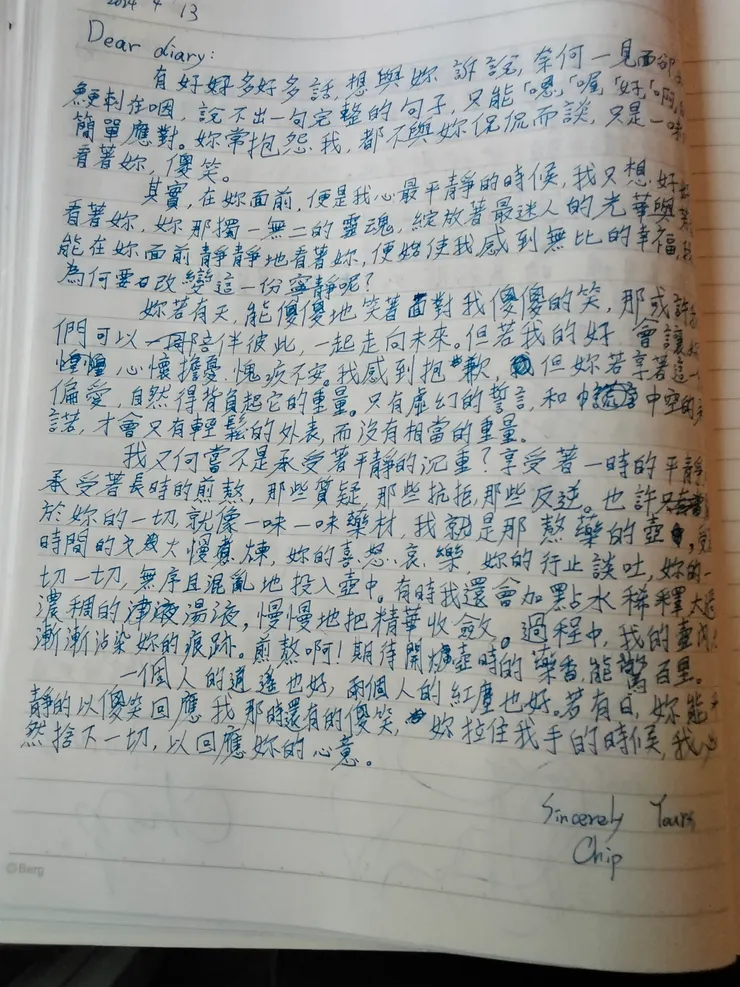 2024 4 13
Dear diary:
有好好多好多話,想與妳訴說,奈何一見面卻
鯁刺在咽,說不出一句完整的句子,只能「嗯」「喔」「好」「啊」
簡單應對。妳常抱怨我,都不與妳侃侃而談,只是一味
看著妳,傻笑。
其實,在妳面前,便是我心最平靜的時候,我又想好好
看著妳,妳那獨一無二的靈魂,綻放著最迷人的光華與
能在妳面前靜靜地看著妳,便始使我感到無比的幸福,我
為何要改變這一份寧靜呢?
妳若有天,能傻傻地笑著面對我傻傻的笑,那或許
們可以一陪伴彼此,一起走向未來。但若我的好會讓
惶惶心懷擔憂愧疚不安。我感到抱歉,但妳若享著這
偏愛,自然得背負起它的重量。只有虛幻的誓言,和中空的
諾,才會又有輕鬆的外表,而沒有相當的重量。
我又何嘗不是承受著平靜的沉重?享受著一時的平靜
承受著長時的煎熬,那些質疑,那些抗拒,那些反逆。也許只
於妳的一切,就像一味一味藥材,我就是那熬藥的壺,
時間的火慢煮煉,妳的喜怒哀樂,妳的行止談吐,妳的一
切一切,無序且混亂地投入壺中。有時我還會加點水稀釋太過
濃稠的湯液,慢慢地把精華收斂。過程中,我的壺內
漸漸沾染妳的痕跡。煎熬啊!期待開壺時的藥香,能驚百里。
一個人的逍遙也好,兩個人的紅塵也好。若有日,妳能
靜的以傻笑回應我那時還有的傻笑,妳拉住我手的時候,我
然捨下一切,以回應妳的心意。
Sincerely Yours
Chip
@Berg